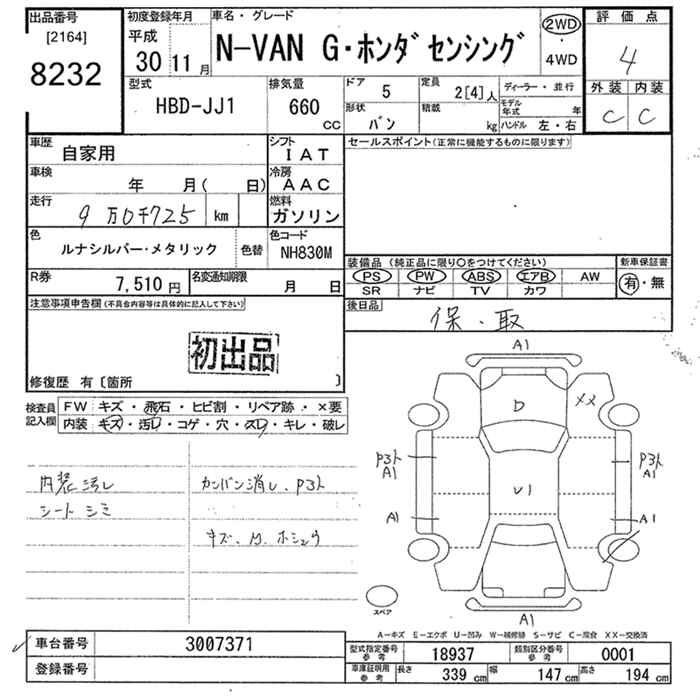 出品番号
[2164]
8232
初度登録年月
平成
30 11月
車名・グレード
N-VAN G・ホンダセンシング
2WD
・
4WD
評価点
4
外装 内装
C C
型式
HBD-JJ1
排気量
660
cc
ドア
5
定員
2[4]人
ディーラー・並行
形状
バン
積載
kg
モデル年式 年
ハンドル 左・右
車歴
自家用
シフト
IAT
車検
年 月( 日)
冷房
AAC
走行
9万0千725 km
燃料
ガソリン
色
ルナシルバー・メタリック
色替
色コード
NH830M
R券
7,510円
名変通知期限
月 日
セールスポイント(正常に機能するものに限ります)
装備品(純正品に限り○をつけてください)
新車保証書
PS PW ABS エアB AW
SR ナビ TV カワ
有・無
後日品
保・取
注意事項申告欄(不具合内容等は具体的に記入して下さい)
初出品
修復歴 有〔箇所 〕
検査員記入欄
FW キズ・飛石・ヒビ割・リペア跡・×要
内装 キズ・汚レ・コゲ・穴・スレ・キレ・破レ
内装汚レ
シートシミ
カンバン消し、P3ト
A1
D
XX
P3ト
A1
P3ト
A1
U1
A1
A1
A1
スペア
A-キズ E-エクボ U-凹み W-補修跡 S-サビ C-腐食 XX-交換済
車台番号
3007371
登録番号
型式指定番号
参考
18937
類別区分番号
参考
0001
車庫証明用
参考
長さ 339cm
幅 147cm
高さ 194cm